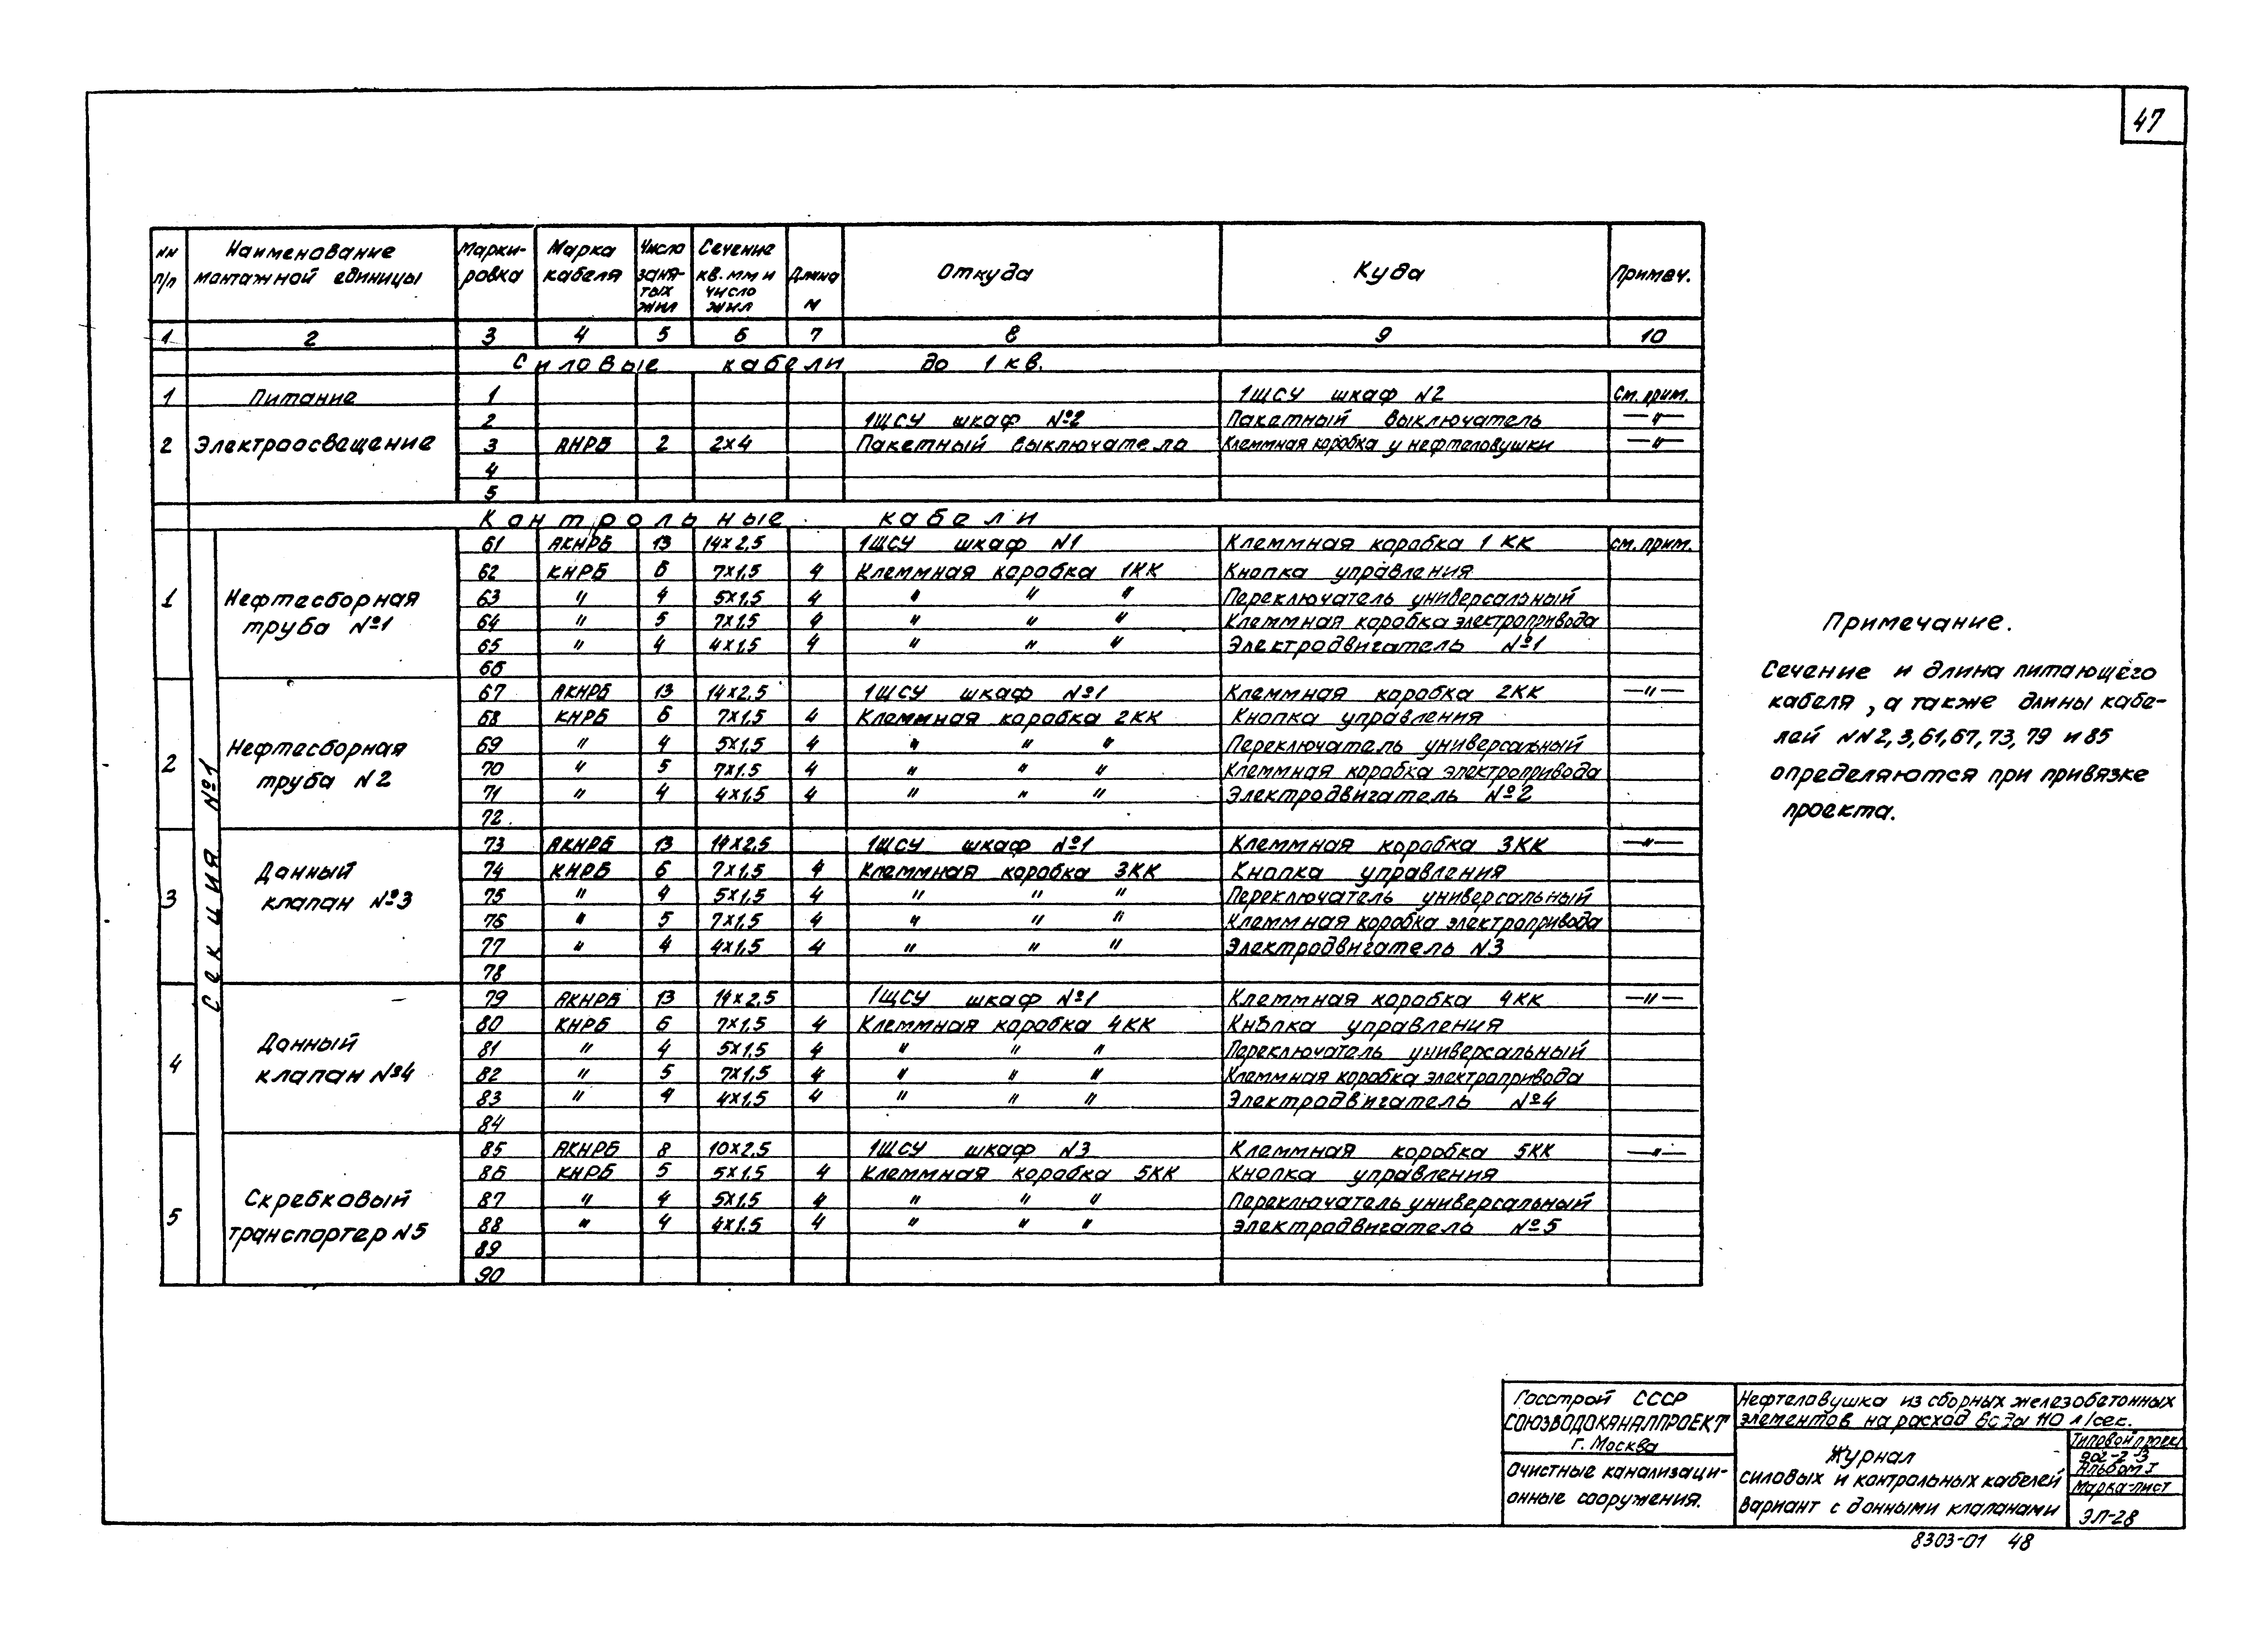 47
NN п/п | Наименование монтажной единицы | Марки-ровка | Марка кабеля | Число заня-тых жил | Сечение кв.мм и число жил | Длина м | Откуда | Куда | Примеч.
1 | 2 | 3 | 4 | 5 | 6 | 7 | 8 | 9 | 10
Силовые кабели до 1 кв.
1 | Питание | 1 | 1ЩСУ шкаф N2 | См. прим.
2 | 1ЩСУ шкаф №2 | Пакетный выключатель | —"—
2 | Электроосвещение | 3 | АНРБ | 2 | 2х4 | Пакетный выключатель | Клеммная коробка у нефтеловушки | —"—
4
5
Контрольные кабели
Секция №1
61 | АКНРБ | 13 | 14х2,5 | 1ЩСУ шкаф N1 | Клеммная коробка 1 КК | см. прим.
62 | КНРБ | 6 | 7х1,5 | 4 | Клеммная коробка 1КК | Кнопка управления
1 | Нефтесборная труба №1 | 63 | " | 4 | 5х1,5 | 4 | " " " | Переключатель универсальный
64 | " | 5 | 7х1,5 | 4 | " " " | Клеммная коробка электропривода
65 | " | 4 | 4х1,5 | 4 | " " " | Электродвигатель №1
66
67 | АКНРБ | 13 | 14х2,5 | 1ЩСУ шкаф №1 | Клеммная коробка 2КК | —"—
68 | КНРБ | 6 | 7х1,5 | 4 | Клеммная коробка 2КК | Кнопка управления
2 | Нефтесборная труба N2 | 69 | " | 4 | 5х1,5 | 4 | " " " | Переключатель универсальный
70 | " | 5 | 7х1,5 | 4 | " " " | Клеммная коробка электропривода
71 | " | 4 | 4х1,5 | 4 | " " " | Электродвигатель №2
72
73 | АКНРБ | 13 | 14х2,5 | 1ЩСУ шкаф №1 | Клеммная коробка 3КК | —"—
74 | КНРБ | 6 | 7х1,5 | 4 | Клеммная коробка 3КК | Кнопка управления
3 | Данный клапан №3 | 75 | " | 4 | 5х1,5 | 4 | " " " | Переключатель универсальный
76 | " | 5 | 7х1,5 | 4 | " " " | Клеммная коробка электропривода
77 | " | 4 | 4х1,5 | 4 | " " " | Электродвигатель N3
78
79 | АКНРБ | 13 | 14х2,5 | 1ЩСУ шкаф №1 | Клеммная коробка 4КК | —"—
80 | КНРБ | 6 | 7х1,5 | 4 | Клеммная коробка 4КК | Кнопка управления
4 | Данный клапан №4 | 81 | " | 4 | 5х1,5 | 4 | " " " | Переключатель универсальный
82 | " | 5 | 7х1,5 | 4 | " " " | Клеммная коробка электропривода
83 | " | 4 | 4х1,5 | 4 | " " " | Электродвигатель №4
84
85 | АКНРБ | 8 | 10х2,5 | 1ЩСУ шкаф N3 | Клеммная коробка 5КК | —"—
86 | КНРБ | 5 | 5х1,5 | 4 | Клеммная коробка 5КК | Кнопка управления
5 | Скребковый транспортер N5 | 87 | " | 4 | 5х1,5 | 4 | " " " | Переключатель универсальный
88 | " | 4 | 4х1,5 | 4 | " " " | Электродвигатель №5
89
90
Примечание.
Сечение и длина питающего
кабеля, а также длины кабе-
лей NN2,3,61,67,73,79 и 85
определяются при привязке
проекта.
Госстрой СССР
СОЮЗВОДОКАНАЛПРОЕКТ
г. Москва
Очистные канализаци-
онные сооружения.
Нефтеловушка из сборных железобетонных
элементов на расход воды 110 л/сек.
Журнал
силовых и контрольных кабелей
вариант с донными клапанами
Типовой проект
902-2-3
Альбом I
Марка-лист
ЭЛ-28
8303-01 48